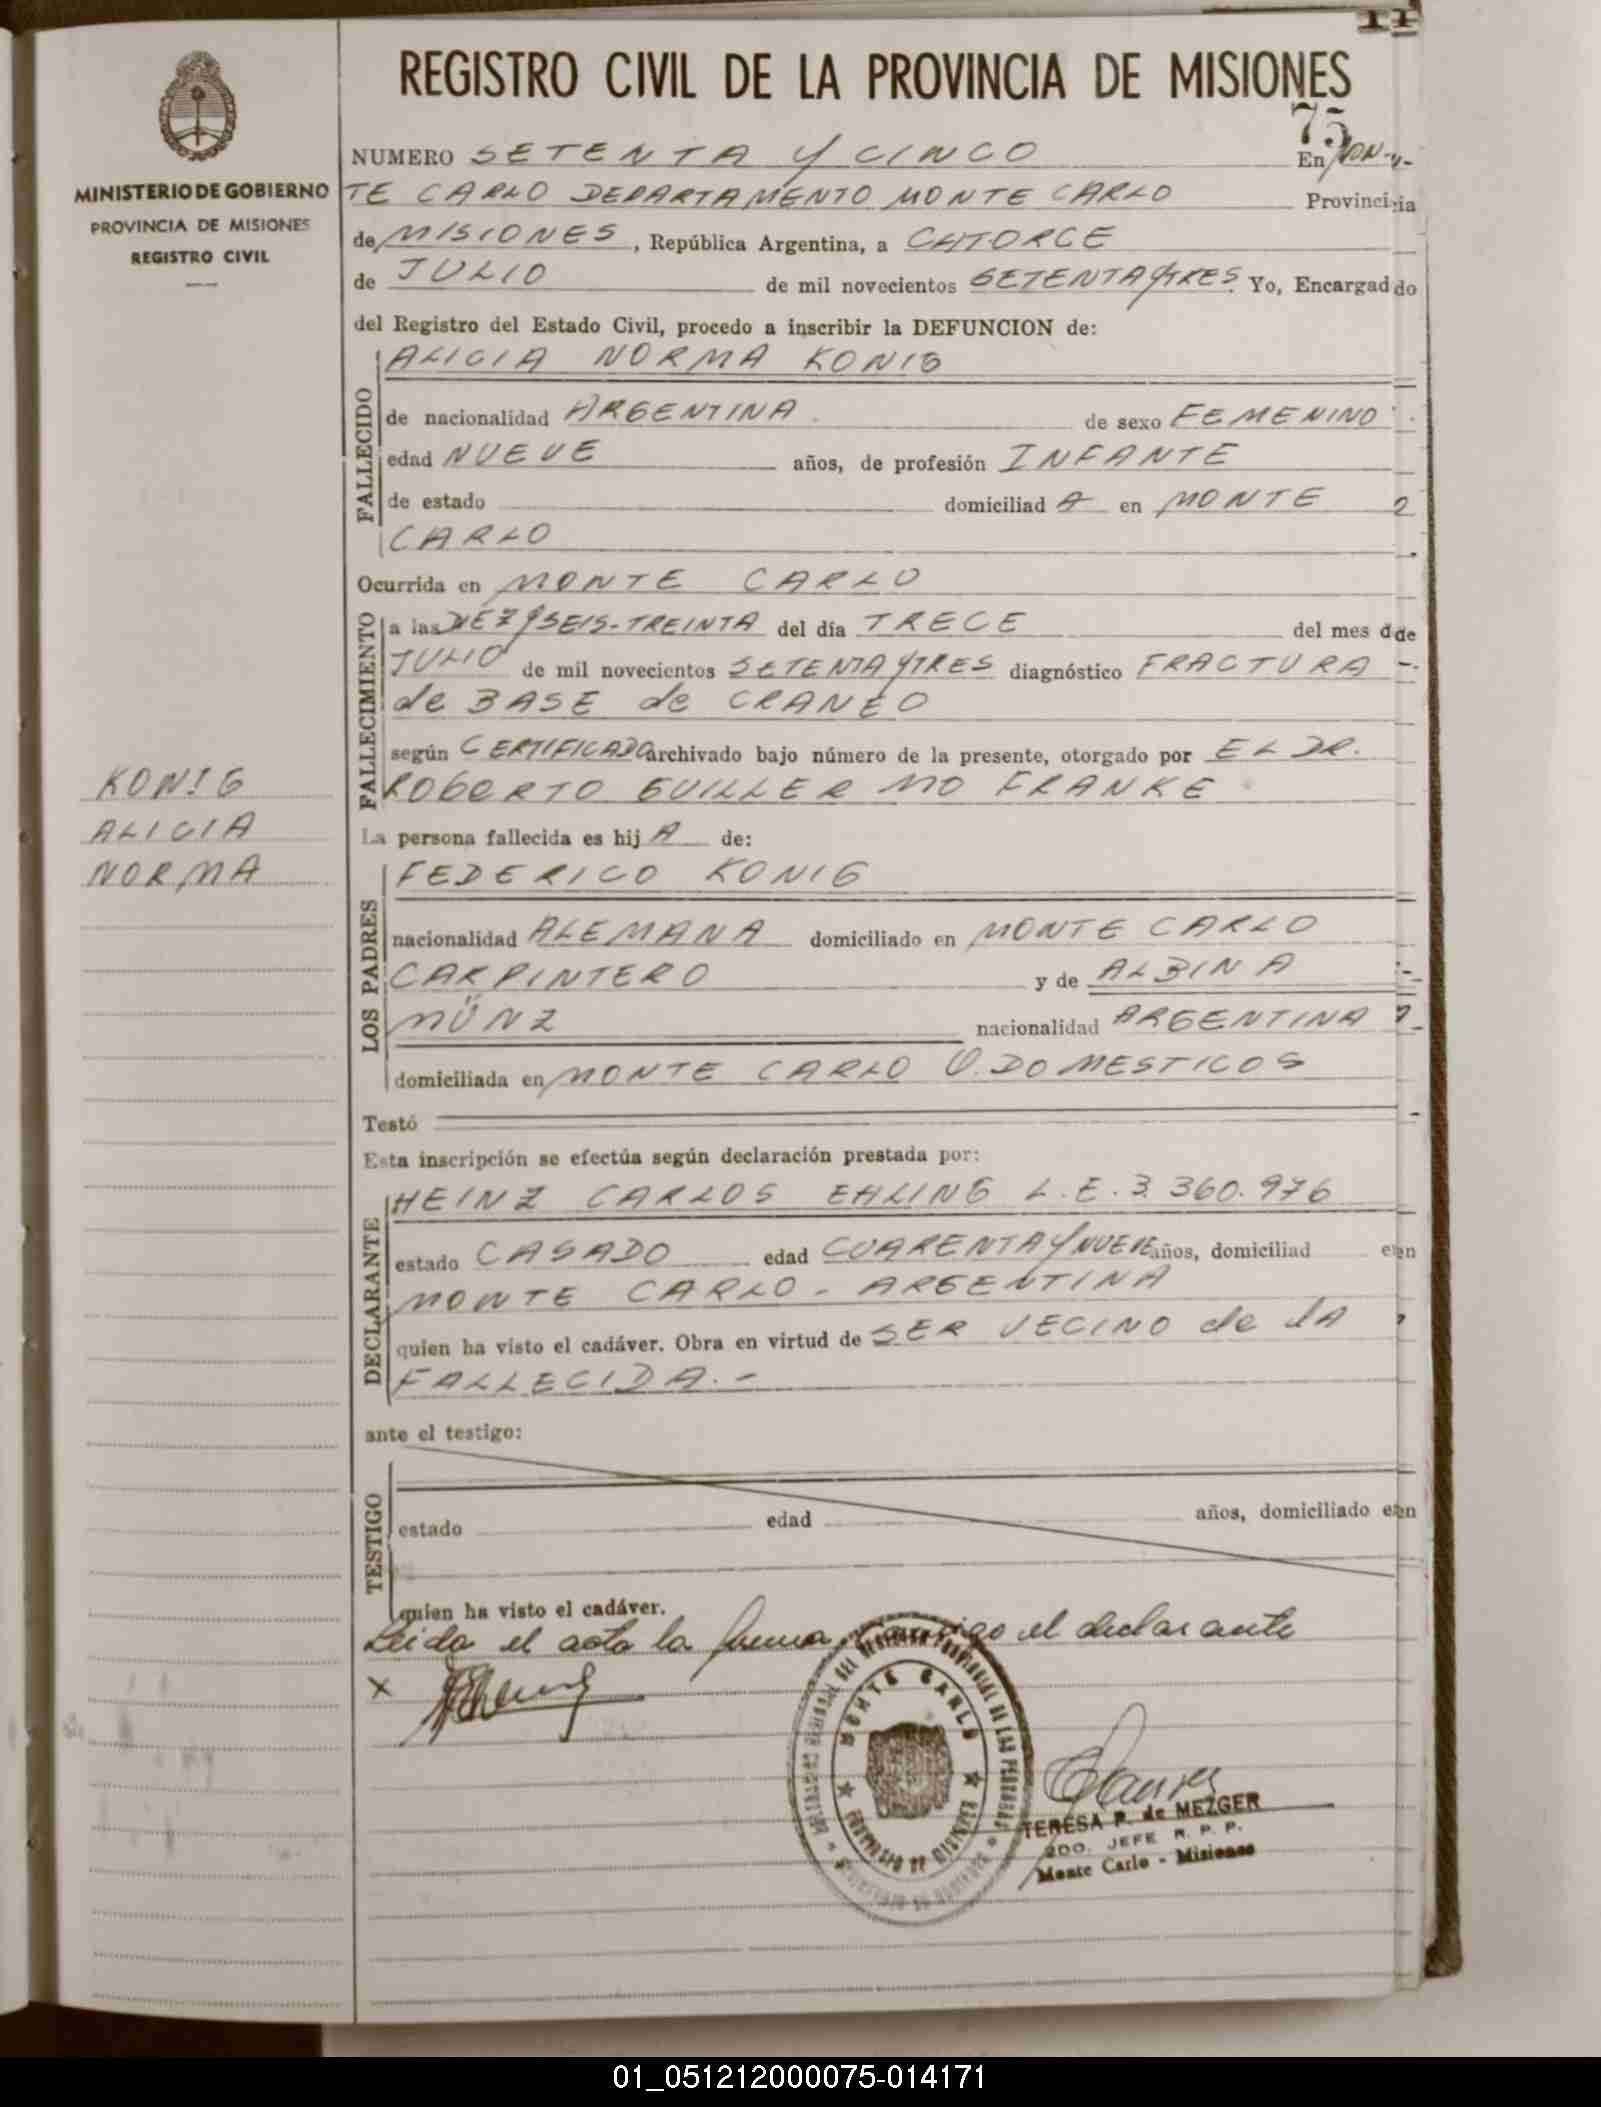 11
REGISTRO CIVIL DE LA PROVINCIA DE MISIONES
75
MINISTERIO DE GOBIERNO
PROVINCIA DE MISIONES
REGISTRO CIVIL
NUMERO SETENTA Y CINCO En MON-
TE CARLO DEPARTAMENTO MONTE CARLO Provincia
de MISIONES, República Argentina, a CATORCE
de JULIO de mil novecientos SETENTA Y TRES Yo, Encargado
del Registro del Estado Civil, procedo a inscribir la DEFUNCION de:
ALICIA NORMA KONIG
FALLECIDO
de nacionalidad ARGENTINA de sexo FEMENINO
edad NUEVE años, de profesión INFANTE
de estado domiciliad A en MONTE
CARLO
Ocurrida en MONTE CARLO
FALLECIMIENTO
a las DIEZ Y SEIS-TREINTA del día TRECE del mes de
JULIO de mil novecientos SETENTA Y TRES diagnóstico FRACTURA
de BASE de CRANEO
según CERTIFICADO archivado bajo número de la presente, otorgado por EL DR.
ROBERTO GUILLERMO FRANKE
KONIG
ALICIA
NORMA
La persona fallecida es hij A de:
FEDERICO KONIG
LOS PADRES
nacionalidad ALEMANA domiciliado en MONTE CARLO
CARPINTERO y de ALBINA
MÜNZ nacionalidad ARGENTINA
domiciliada en MONTE CARLO Q. DOMESTICOS
Testó
Esta inscripción se efectúa según declaración prestada por:
HEINZ CARLOS EHLING L.E. 3.360.976
DECLARANTE
estado CASADO edad CUARENTA Y NUEVE años, domiciliad en
MONTE CARLO - ARGENTINA
quien ha visto el cadáver. Obra en virtud de SER VECINO de LA
FALLECIDA.-
ante el testigo:
TESTIGO
estado edad años, domiciliado en
quien ha visto el cadáver.
Leida el acta la firma conmigo el declarante
X
MONTE CARLO
PROVINCIA DE MISIONES
TERESA P. de MEZGER
2DO. JEFE R. P. P.
Monte Carlo - Misiones
01_051212000075-014171